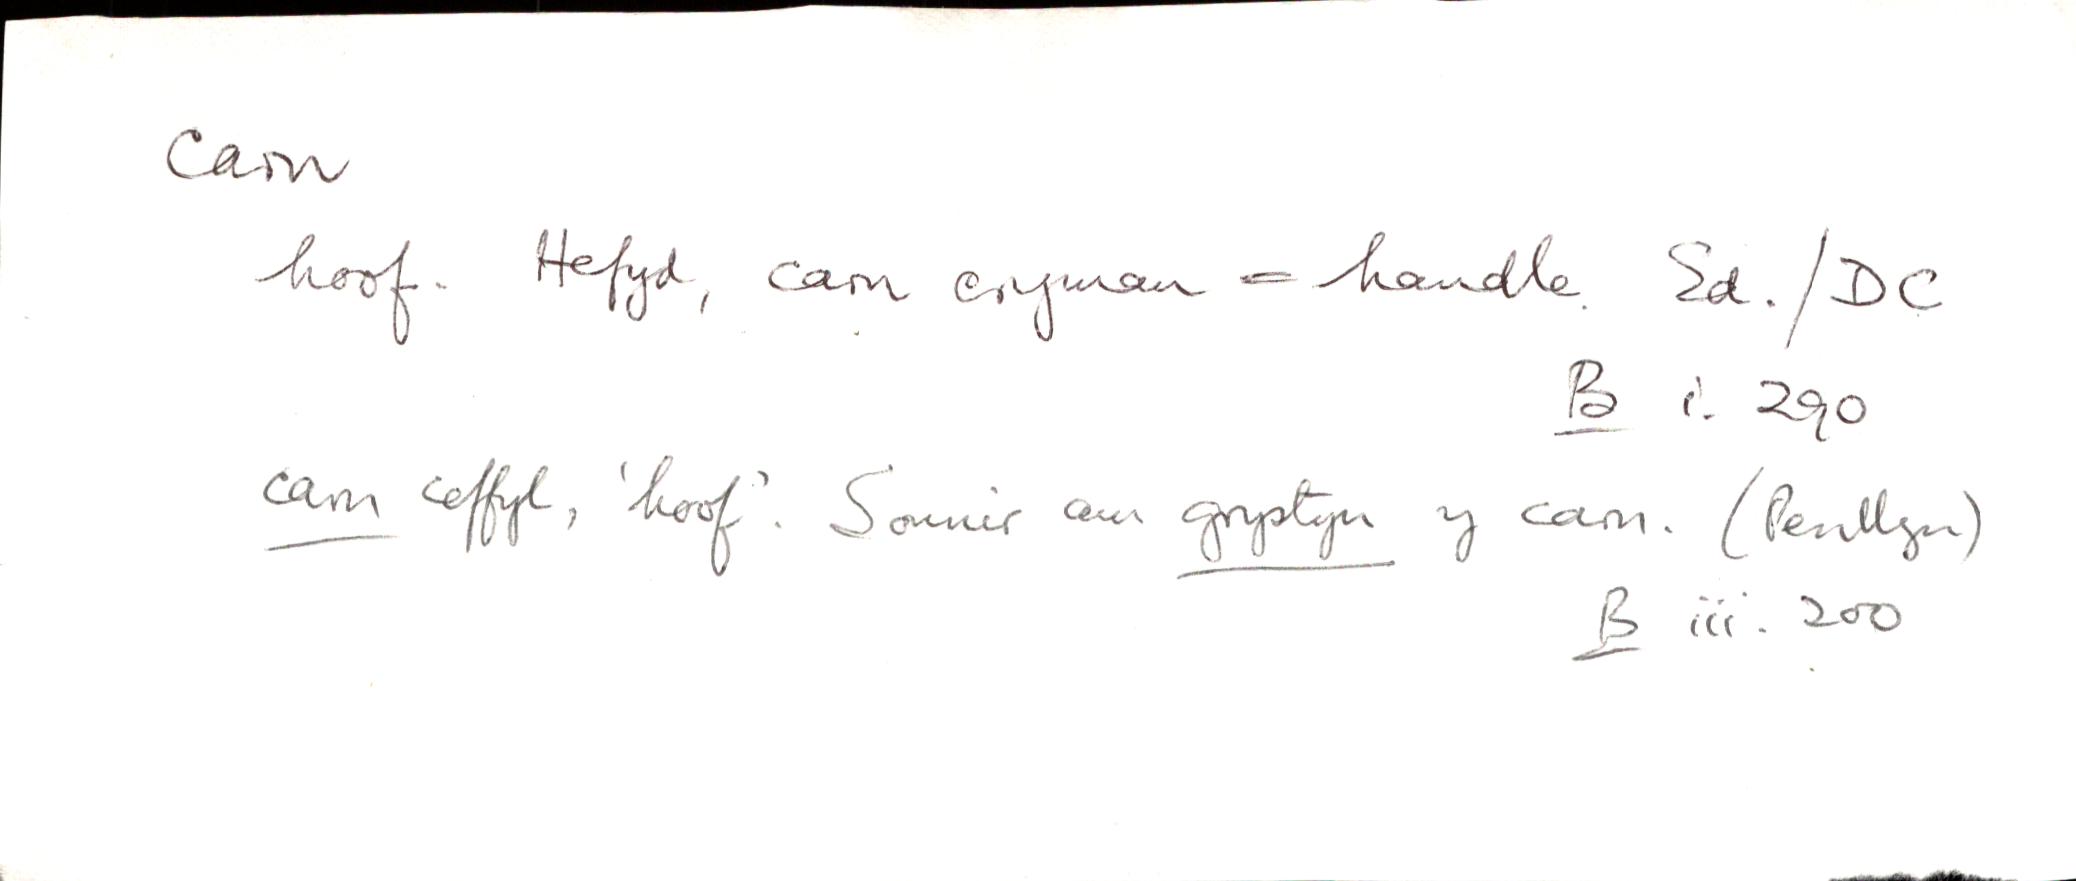 Carn
hoof. Hefyd, carn cryman = handle. Ed./DC
B i. 290
carn ceffyl, 'hoof'. Sonnir am grystyn y carn. (Penllyn)
B iii. 200